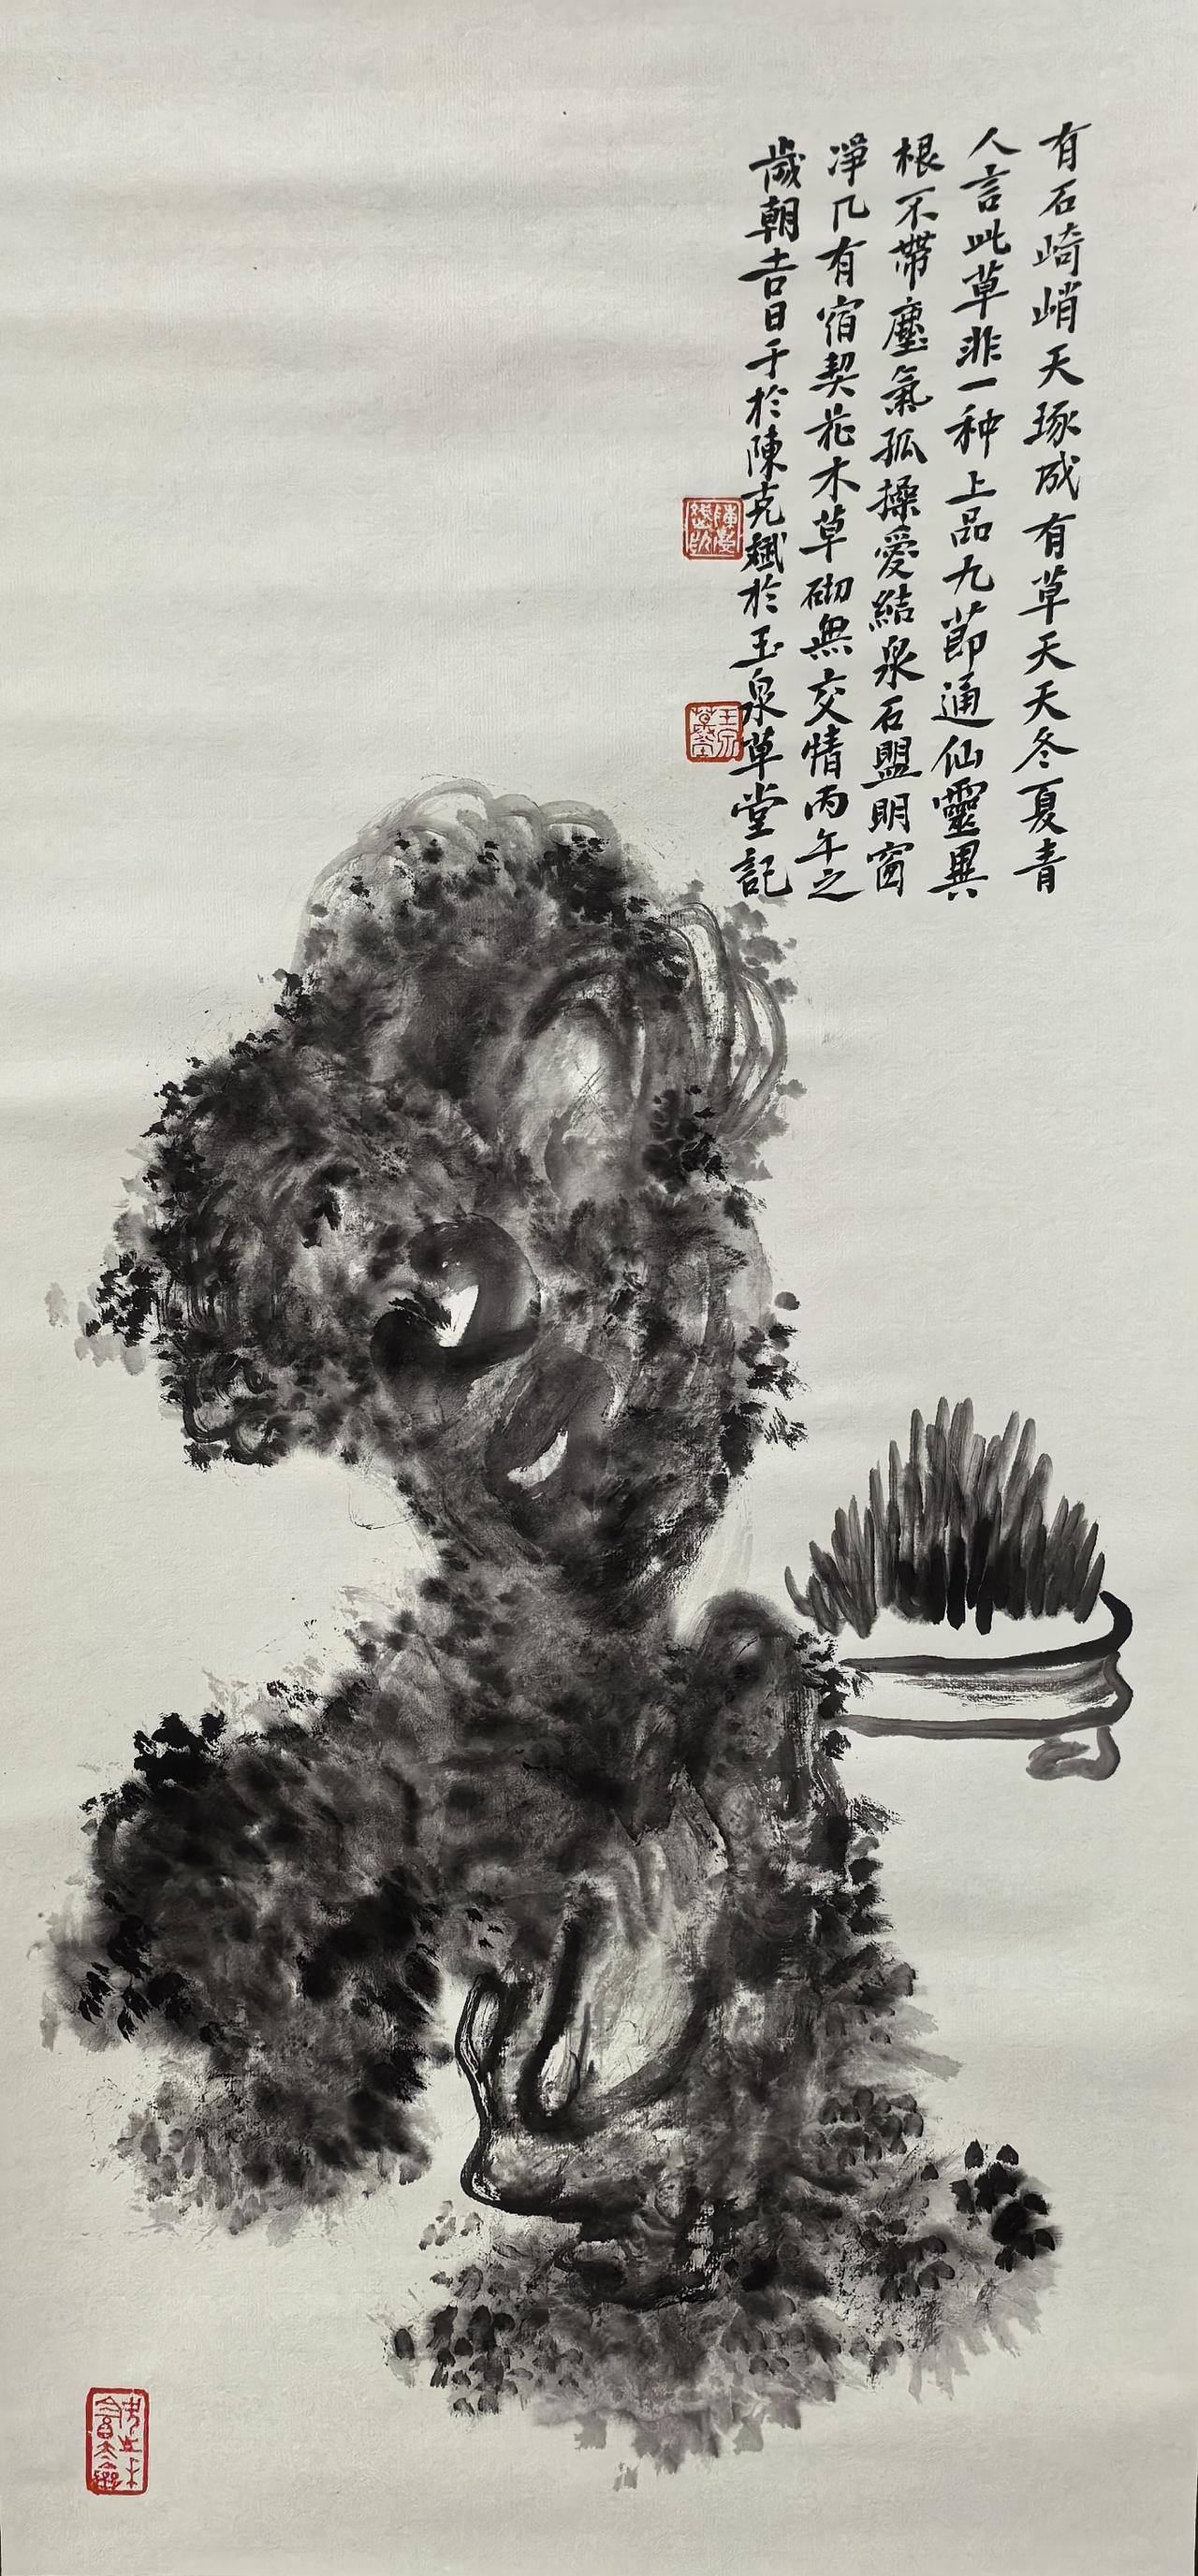 有石崎峭天琢成有草夭夭冬夏青
人言此草非一种上品九節通仙靈異
根不帶塵氣孤操愛結泉石盟明窗
淨几有宿契花木草砌無交情丙午之
歲朝吉日于於陳克斌於玉泉草堂記